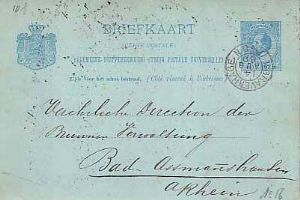 BRIEFKAART
(CARTE POSTALE)
ALGEMEENE POSTVEREENIGING (UNION POSTALE UNIVERSELLE)
Zijde voor het adres bestemd. (Côté réservé à l'adresse)
Direction der
Brunnen Verwaltung
Bad Assmannshausen
a Rhein